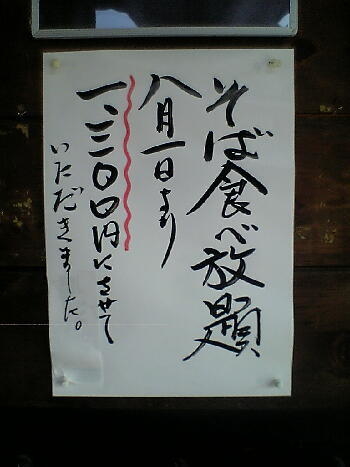 そば食べ放題
八月一日より
一、三〇〇円にさせて
いただきました。